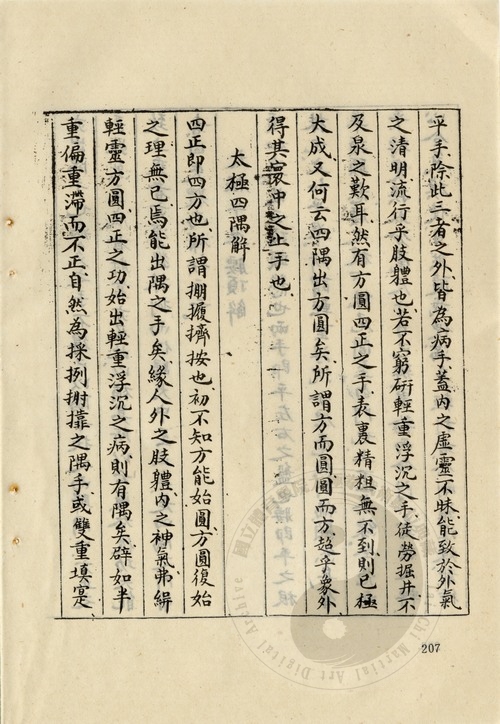 平手、除此三者之外、皆為病手、蓋內之虛靈不昧、能致於外氣
之清明、流行乎肢體也、若不窮研輕重浮沉之手、徒勞掘井不
及泉之歎耳、然有方圓四正之手、表裏精粗無不到、則已極
大成、又何云四隅出方圓矣、所謂方而圓、圓而方、超乎象外、
得其寰中之上手也、
太極四隅解
四正即四方也、所謂掤攦擠按也、初不知方能始圓、方圓復始
之理無已、焉能出隅之手矣、緣人外之肢體、內之神氣、弗緝
輕靈方圓四正之功、始出輕重浮沉之病、則有隅矣、辟如半
重偏重、滯而不正、自然為採挒肘靠之隅手、或雙重填寔
207